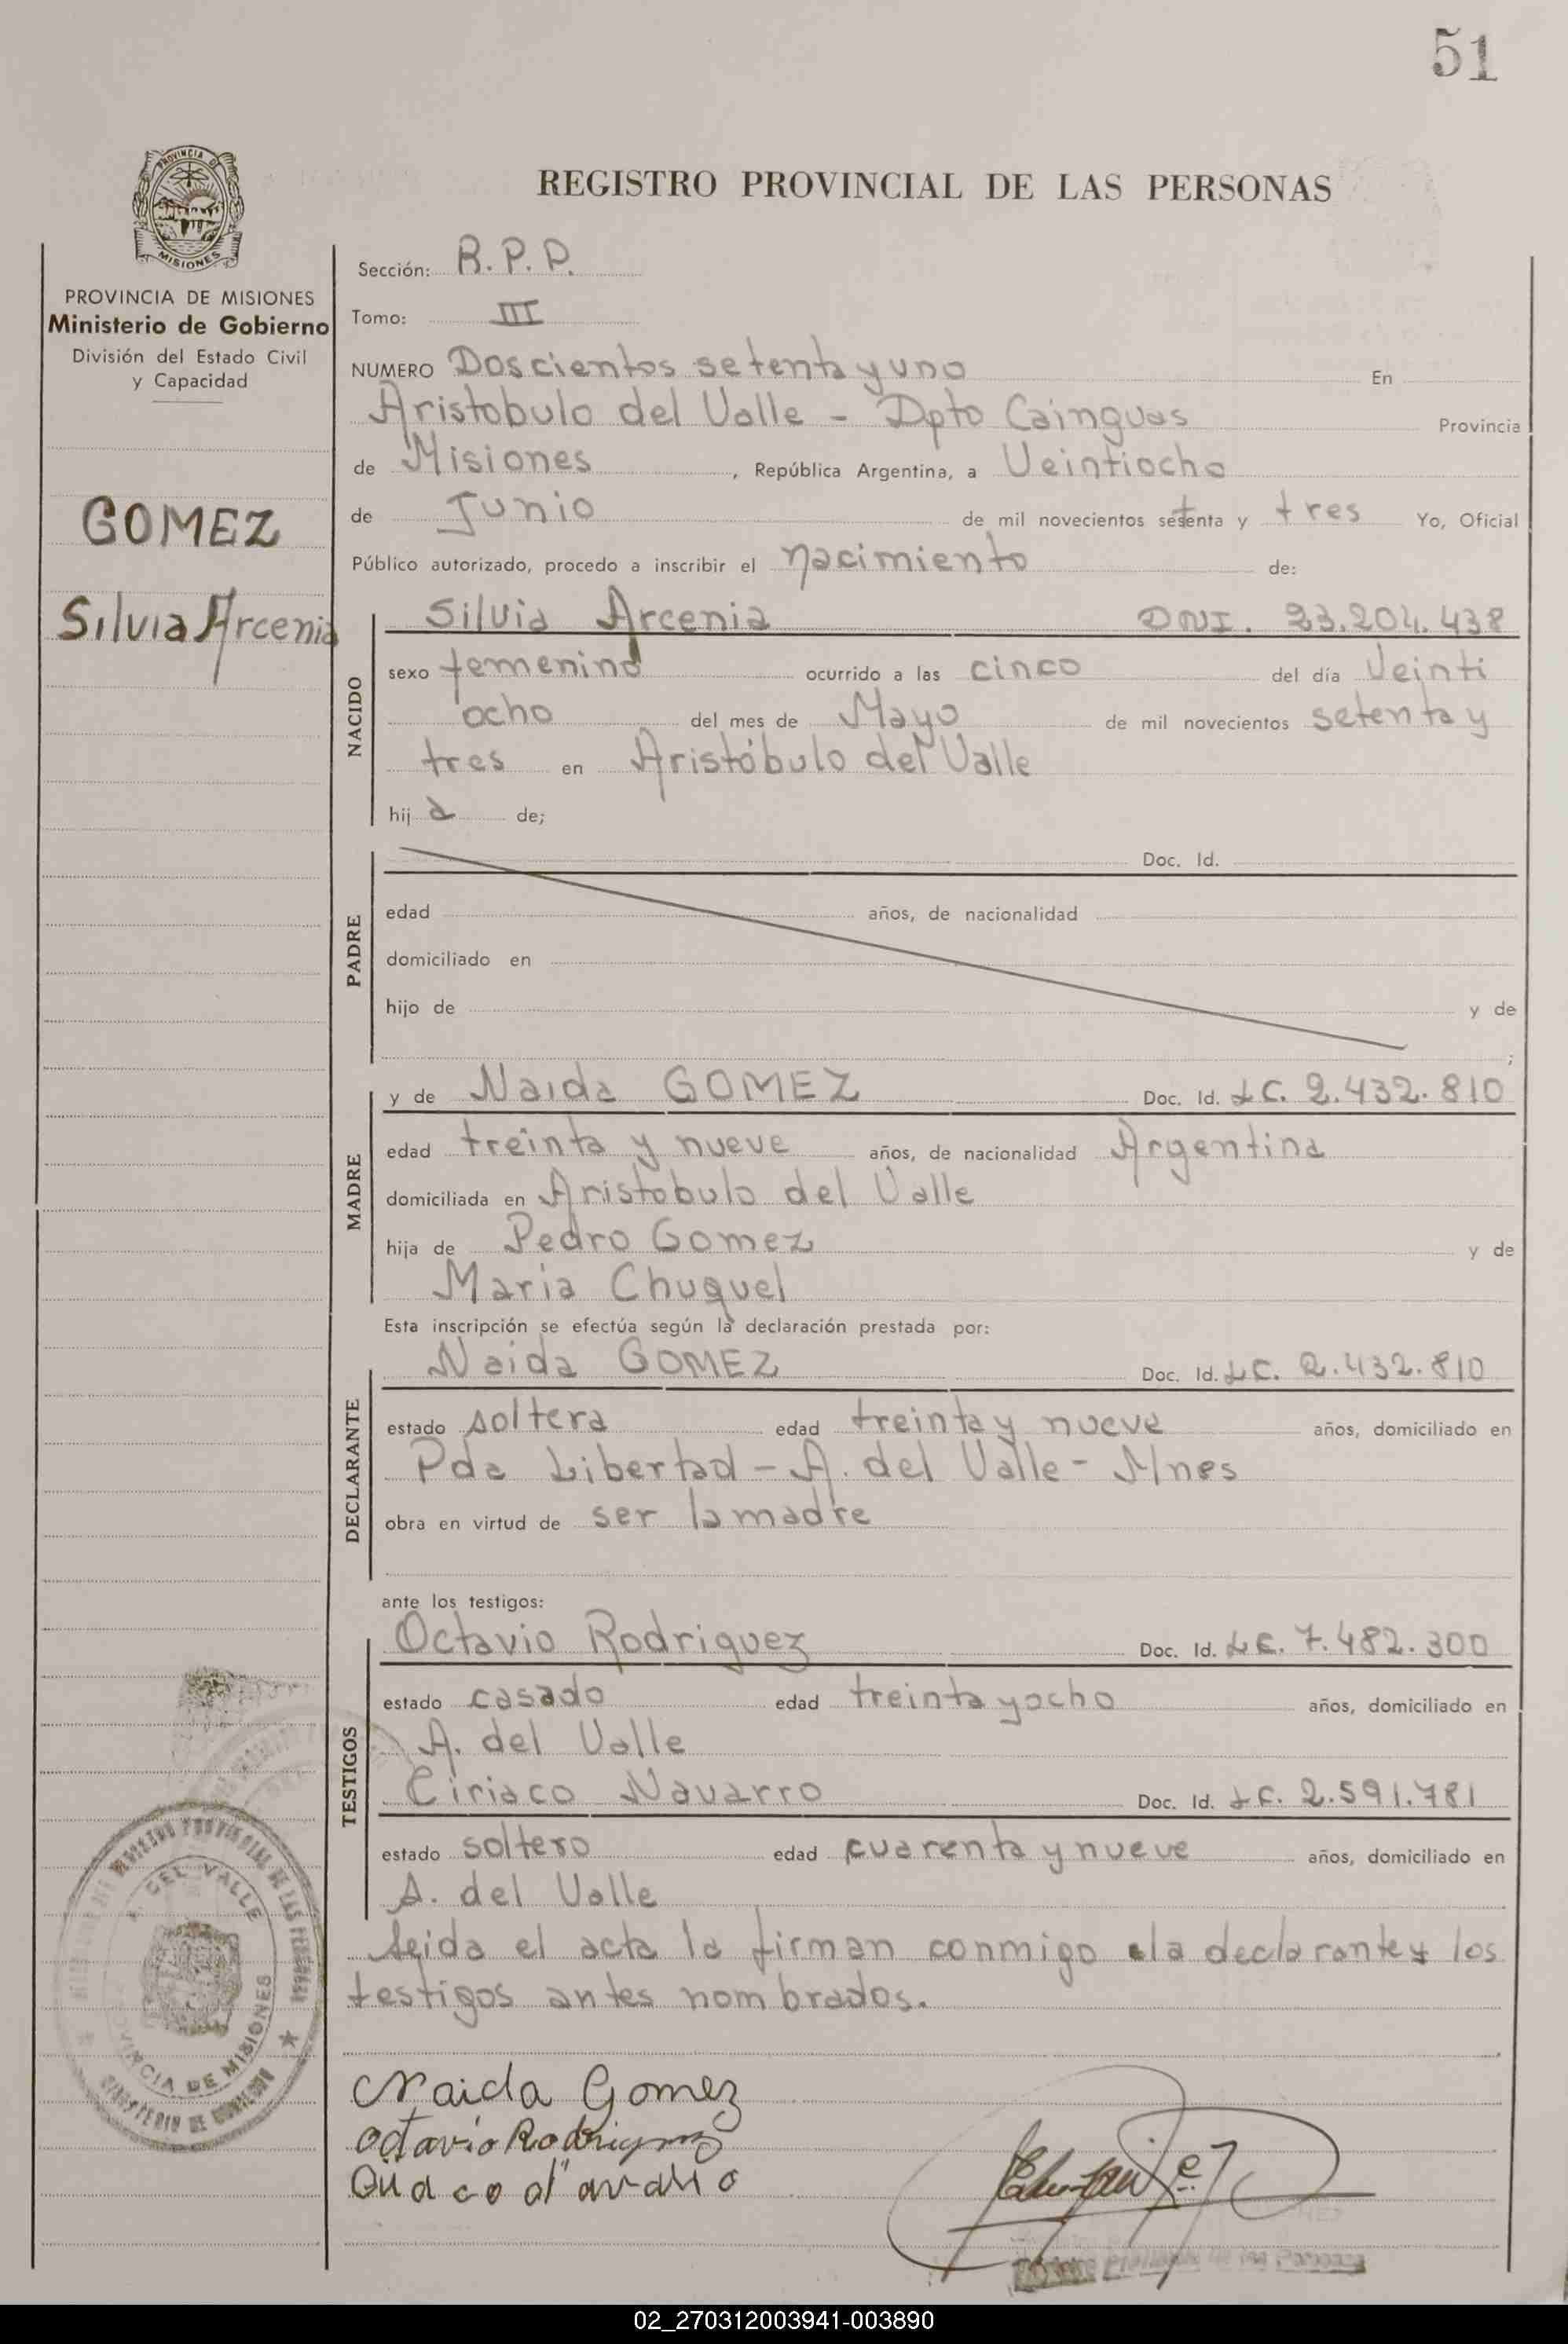 51
PROVINCIA DE
MISIONES
PROVINCIA DE MISIONES
Ministerio de Gobierno
División del Estado Civil
y Capacidad
GOMEZ
Silvia Arcenia
REGISTRO PROVINCIAL DE LAS PERSONAS
Sección: R.P.P.
Tomo: III
NUMERO Doscientos setenta y uno En
Aristobulo del Valle - Dpto Cainguas Provincia
de Misiones, República Argentina, a Veintiocho
de Junio de mil novecientos setenta y tres Yo, Oficial
Público autorizado, procedo a inscribir el nacimiento de:
NACIDO
Silvia Arcenia DNI. 23.204.438
sexo femenino ocurrido a las cinco del día Veinti
ocho del mes de Mayo de mil novecientos setenta y
tres en Aristóbulo del Valle
hij a de;
PADRE
Doc. Id.
edad años, de nacionalidad
domiciliado en
hijo de y de
;
MADRE
y de Naida GOMEZ Doc. Id. LC. 2.432.810
edad treinta y nueve años, de nacionalidad Argentina
domiciliada en Aristobulo del Valle
hija de Pedro Gomez y de
Maria Chuquel
Esta inscripción se efectúa según la declaración prestada por:
DECLARANTE
Naida GOMEZ Doc. Id. LC. 2.432.810
estado soltera edad treinta y nueve años, domiciliado en
Pda Libertad - A. del Valle - Mnes
obra en virtud de ser la madre
ante los testigos:
TESTIGOS
Octavio Rodriguez Doc. Id. LE. 7.482.300
estado casado edad treinta y ocho años, domiciliado en
A. del Valle
Ciriaco Navarro Doc. Id. 2.591.781
estado soltero edad cuarenta y nueve años, domiciliado en
A. del Valle
Leida el acta la firman conmigo la declarante y los
testigos antes nombrados.
REGISTRO PROVINCIAL DE LAS PERSONAS
A. DEL VALLE
PROVINCIA DE MISIONES
MINISTERIO DE GOBIERNO
Naida Gomez
Octavio Rodriguez
02_270312003941-003890